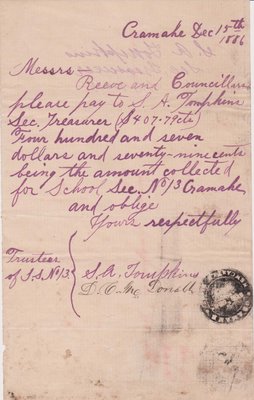 Cramahe Dec 15th
1886
Messrs
Reeve and Councillars
please pay to S. A. Tompkins
Sec. Treasurer ($407-79cts)
Four hundred and seven
dollars and seventy-nine cents
being the amount collected
for School Sec. No 13 Cramahe
and oblige
Yours respectfully
Trustees
of S.S. No 13
S. A. Tompkins
D. C. Mc Donall